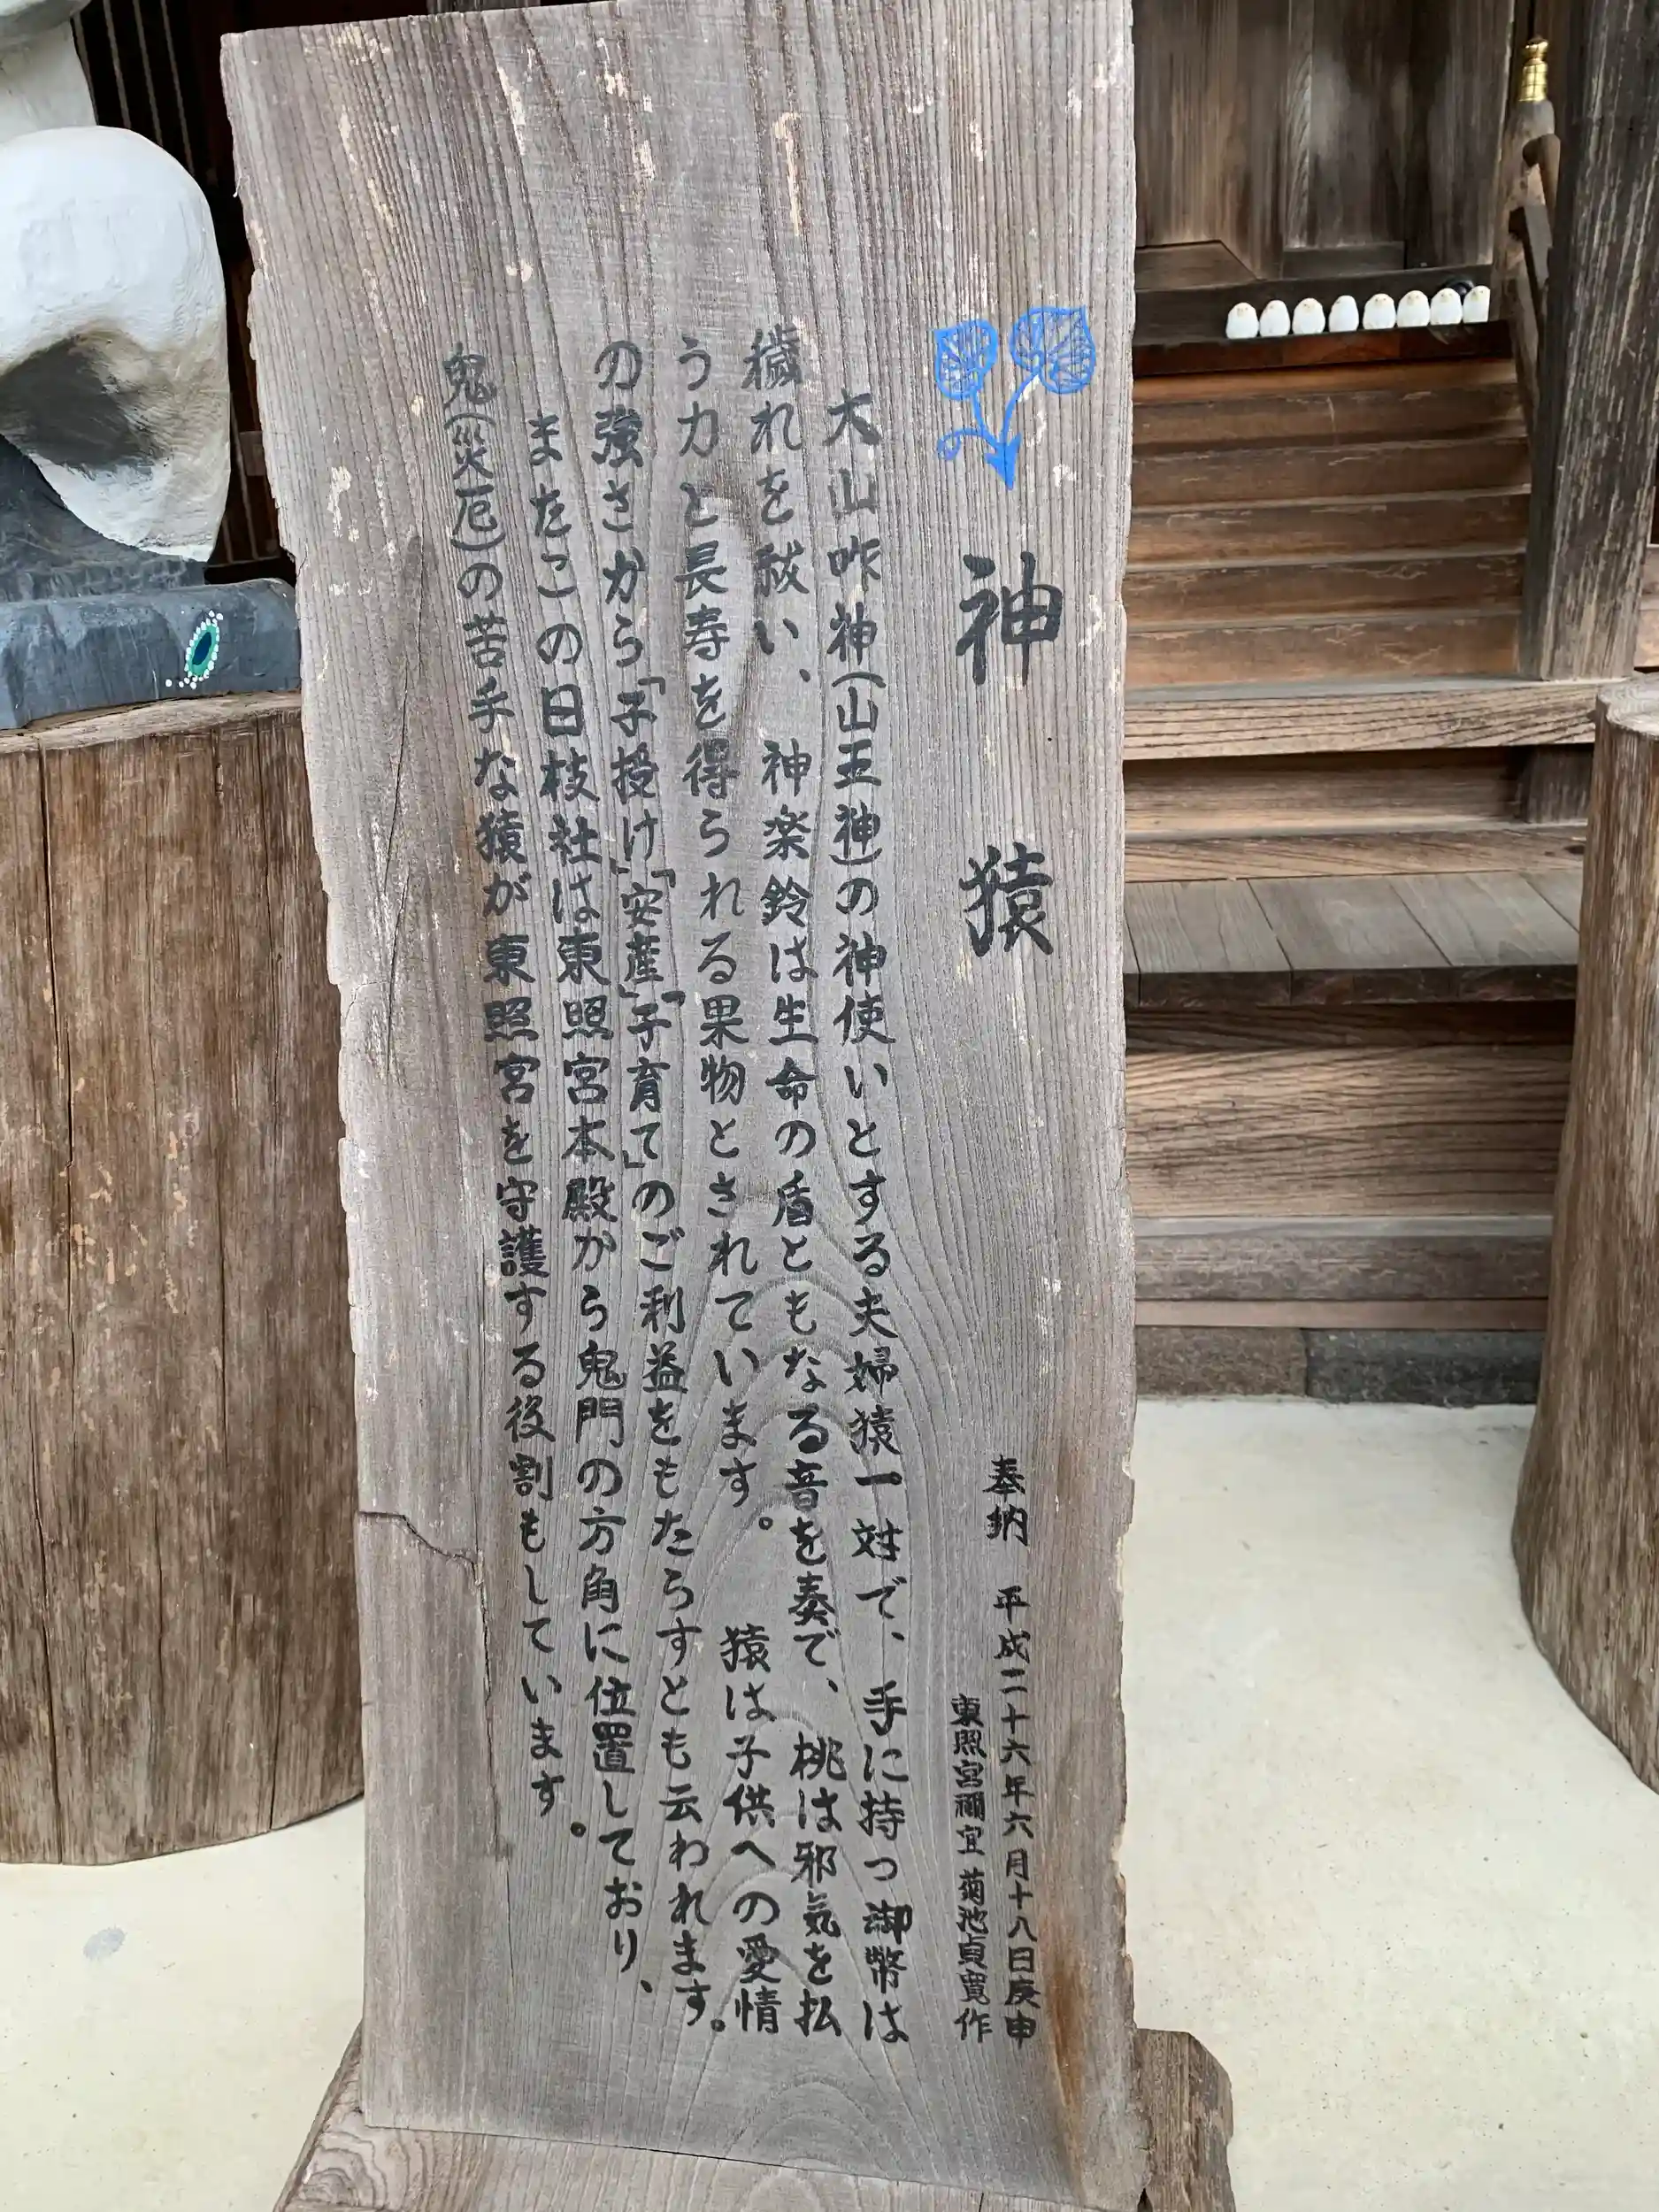 神猿
奉納　平成二十六年六月十八日庚申
東照宮禰宜　菊池貞寛作
大山咋神(山王神)の神使いとする夫婦猿一対で、手に持つ御幣は
穢れを祓い、神楽鈴は生命の盾ともなる音を奏で、桃は邪気を払
う力と長寿を得られる果物とされています。　猿は子供への愛情
の強さから「子授け」「安産」「子育て」のご利益をもたらすとも云われます。
またこの日枝社は東照宮本殿から鬼門の方角に位置しており、
鬼(災厄)の苦手な猿が東照宮を守護する役割もしています。